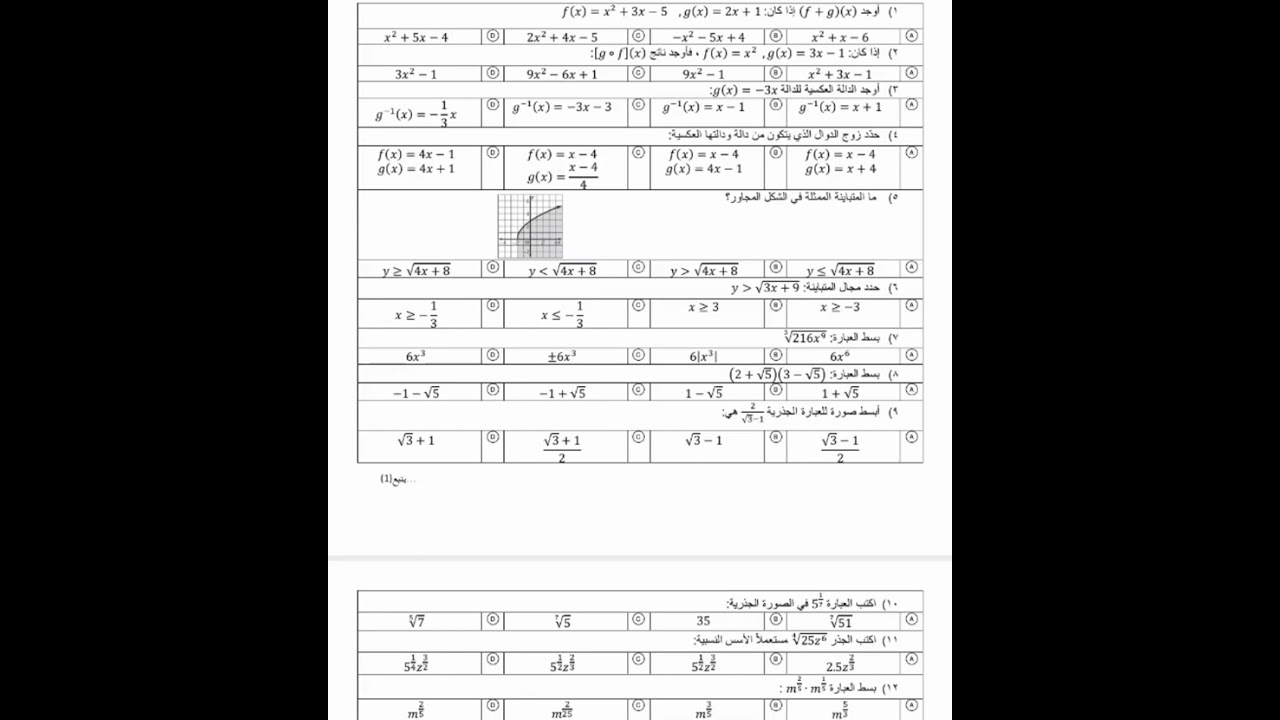 ١) أوجد (f + g)(x) إذا كان: f(x) = x² + 3x − 5 , g(x) = 2x + 1
Ⓐ x² + x − 6 Ⓑ −x² − 5x + 4 Ⓒ 2x² + 4x − 5 Ⓓ x² + 5x − 4
٢) إذا كان: f(x) = x² , g(x) = 3x − 1 ، فأوجد ناتج [g ∘ f](x):
Ⓐ x² + 3x − 1 Ⓑ 9x² − 1 Ⓒ 9x² − 6x + 1 Ⓓ 3x² − 1
٣) أوجد الدالة العكسية للدالة g(x) = −3x:
Ⓐ g⁻¹(x) = x + 1 Ⓑ g⁻¹(x) = x − 1 Ⓒ g⁻¹(x) = −3x − 3 Ⓓ g⁻¹(x) = −1/3 x
٤) حدّد زوج الدوال الذي يتكون من دالة ودالتها العكسية:
Ⓐ f(x) = x − 4 Ⓑ f(x) = x − 4 Ⓒ f(x) = x − 4 Ⓓ f(x) = 4x − 1
g(x) = x + 4 g(x) = 4x − 1 g(x) = (x − 4)/4 g(x) = 4x + 1
٥) ما المتباينة الممثلة في الشكل المجاور؟
Ⓐ y ≤ √(4x + 8) Ⓑ y > √(4x + 8) Ⓒ y < √(4x + 8) Ⓓ y ≥ √(4x + 8)
٦) حدد مجال المتباينة: y > √(3x + 9)
Ⓐ x ≥ −3 Ⓑ x ≥ 3 Ⓒ x ≤ −1/3 Ⓓ x ≥ −1/3
٧) بسط العبارة: ∛(216x⁹)
Ⓐ 6x⁶ Ⓑ 6|x³| Ⓒ ±6x³ Ⓓ 6x³
٨) بسط العبارة: (2 + √5)(3 − √5)
Ⓐ 1 + √5 Ⓑ 1 − √5 Ⓒ −1 + √5 Ⓓ −1 − √5
٩) أبسط صورة للعبارة الجذرية 2/(√3−1) هي:
Ⓐ (√3 − 1)/2 Ⓑ √3 − 1 Ⓒ (√3 + 1)/2 Ⓓ √3 + 1
يتبع(1)...
١٠) اكتب العبارة 5^(1/7) في الصورة الجذرية:
Ⓐ ⁷√51 Ⓑ 35 Ⓒ ⁷√5 Ⓓ ⁵√7
١١) اكتب الجذر ⁴√(25z⁶) مستعملاً الأسس النسبية:
Ⓐ 2.5z^(2/3) Ⓑ 5^(1/2)z^(3/2) Ⓒ 5^(1/2)z^(2/3) Ⓓ 5^(1/4)z^(3/2)
١٢) بسط العبارة m^(2/5) · m^(1/5) :
Ⓐ m^(5/3) Ⓑ m^(3/5) Ⓒ m^(2/25) Ⓓ m^(2/5)